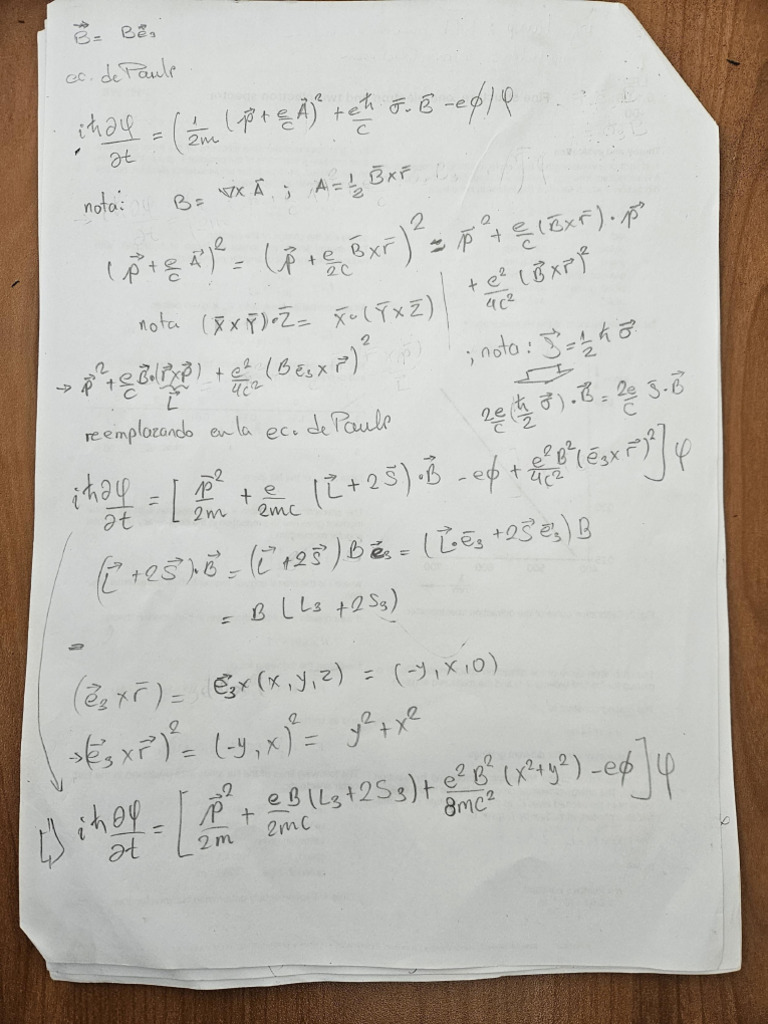 B⃗ = B e⃗₃
ec. de Pauli
iℏ ∂φ/∂t = (1/2m (p⃗ + e/c A⃗)² + eℏ/c σ̄ · B̄ - eϕ) φ
nota: B = ∇ x A⃗ ; A = 1/2 B̄ x r̄
(p⃗ + e/c A⃗)² = (p⃗ + e/2c B̄ x r̄)² = p̄² + e/c (B̄ x r̄) · p⃗
+ e²/4c² (B⃗ x r⃗)²
nota (X̄ x Ȳ) · Z̄ = X̄ · (Ȳ x Z̄)
→ p⃗² + e/c B⃗ · (r⃗ x p⃗) + e²/4c² (B e̅₃ x r⃗)²
L⃗
; nota: S⃗ = 1/2 ℏ σ̄
2e/c (ℏ/2 σ̄) · B̄ = 2e/c S̄ · B̄
reemplazando en la ec. de Pauli
iℏ ∂φ/∂t = [ p̄²/2m + e/2mc (L⃗ + 2S̄) · B⃗ - eϕ + e²B²/4c² (e̅₃ x r⃗)² ] φ
(L⃗ + 2S⃗) · B⃗ = (L⃗ + 2S⃗) B e⃗₃ = (L⃗ · e̅₃ + 2S⃗ e⃗₃) B
= B (L₃ + 2S₃)
=
(e⃗₃ x r̄) = e⃗₃ x (x, y, z) = (-y, x, 0)
→ (e⃗₃ x r⃗)² = (-y, x)² = y² + x²
↳ iℏ ∂φ/∂t = [ p⃗²/2m + eB/2mc (L₃ + 2S₃) + e²B²/8mc² (x² + y²) - eϕ ] φ